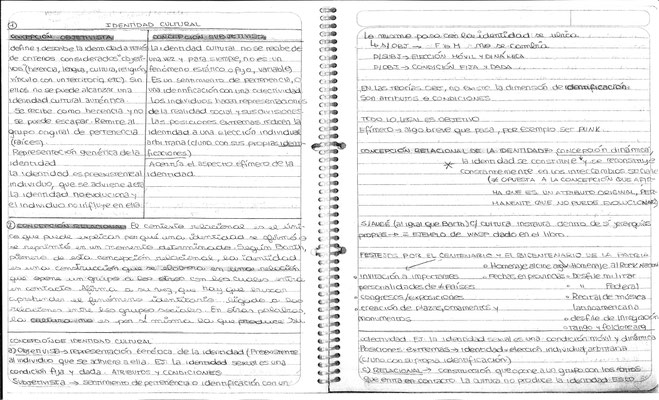 1
IDENTIDAD CULTURAL
CONCEPCIÓN OBJETIVISTA
define y describe la identidad a través
de criterios considerados "objeti-
vos" (herencia, lengua, cultura, religión,
vínculo con un territorio, etc). Sin
ellos no se puede alcanzar una
identidad cultural auténtica.
Se recibe como herencia y no
se puede escapar. Remite al
grupo original de pertenencia
(raíces).
Representación genética de la
identidad
La identidad es preexistente al
individuo, que se adviene a ella
La identidad no evoluciona y
el individuo no influye en ella.
CONCEPCIÓN SUBJETIVISTA
La identidad cultural no se recibe de
una vez y para siempre, no es un
fenómeno estático o fijo, variable.
Es un sentimiento de pertenencia, o
una identificación con una colectividad
Los individuos hacen representaciones
de la realidad social y sus divisiones
Las posiciones extremas reducen la
identidad a una elección individual
arbitraria (cluno con sus propias identi-
ficaciones)
Acentúa el aspecto efímero de la
identidad.
2 CONCEPCIÓN RELACIONAL: El contexto relacional es el úni-
co que puede explicar por qué una identidad se afirma o
se reprimió en un momento determinado. Según Barth,
pionero de esta concepción, la identidad
es una construcción que se elabora en una relación
que opone un grupo a los otros con los cuales entra
en contacto. Afirma a su vez, que hay que
el fenómeno identitario ligado a las
relaciones entre los grupos sociales. En otras palabras,
la cultura no es por sí misma la que produce su
CONCEPCIÓN DE IDENTIDAD CULTURAL
a) OBJETIVISTA → representación genética de la identidad (Preexistente
al individuo que se adviene a ella. EJ: La identidad sexual es una
condición fija y dada. ATRIBUTOS Y CONDICIONES
SUBJETIVISTA → sentimiento de pertenencia o identificación con un
Lo mismo pasa con la identidad se única
↳ N/OBJ → F o M no se cambia
D/SUBJ → ELECCIÓN MÓVIL Y DINÁMICA
D/OBJ → CONDICIÓN FIJA Y DADA.
EN LAS TEORÍAS OBJ, no existe la dimensión de identificación.
Son atributos → CONDICIONES
TODO LO LEGAL ES OBJETIVO
Efímero → algo breve que pasa, por ejemplo ser PUNK
CONCEPCIÓN RELACIONAL DE LA IDENTIDAD (concepción dinámica)
* la identidad se construye y se reconstruye
constantemente en los intercambios sociales
(SE OPUESTA A LA CONCEPCIÓN QUE AFIR-
MA QUE ES UN ATRIBUTO ORIGINAL, PER-
MANENTE QUE NO PUEDE EVOLUCIONAR)
(al igual que Barth) C/ cultura instaura dentro de sí jerarquías
propias → EJEMPLO DE dado en el libro.
FESTEJOS POR EL CENTENARIO Y EL BICENTENARIO DE LA PATRIA
• invitación a importantes
personalidades de países
• congresos/exposiciones
• creación de plazas, ornamentos y
monumentos
• Homenaje al cine arg
• Fechas en provincias
• Homenaje al
• Desfile militar
• " " Federal
• Recital de música
latinoamericana
• desfile de integración
• tango y folclore arg
colectividad. EJ: La identidad sexual es una condición móvil y dinámica
Posiciones extremas → identidad = elección individual, arbitraria
(cluno a propias identificación)
c) RELACIONAL → construcción que opone a un grupo con los otros
que entra en contacto. La cultura no produce la identidad. ESTO